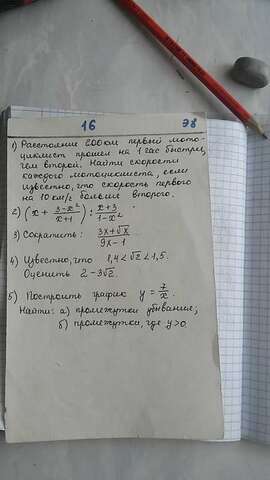 16
ЭВ
1) Расстояние 200 км первый мото-
циклист прошел на 1 час быстрее,
чем второй. Найти скорости
каждого мотоциклиста, если
известно, что скорость первого
на 10 км/ч больше второго.
2) (x + 3-x²/x+1) : x+3/1-x²
3) Сократить: 3x+√x/9x-1
4) Известно, что 1,4<√2<1,5.
Оценить 2-3√2.
5) Построить график y = 7/x.
Найти: а) промежутки убывание;
б) промежутки, где y>0